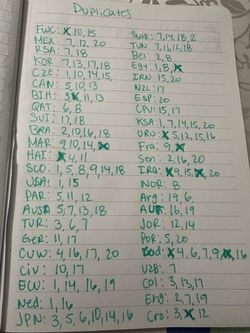 Duplicates
FWC: 10, 15
MEX: 7, 12, 20
RSA: 7, 18
KOR: 7, 13, 17, 18
CZE: 1, 10, 14, 15
CAN: 5, 10, 13
BIH: 3, 11, 13
QAT: 6, 8
SUI: 17, 18
BRA: 2, 10, 16, 18
MAR: 9, 10, 14
HAI: 4, 11
SCO: 1, 5, 8, 9, 14, 18
USA: 1, 15
PAR: 5, 11, 12
AUS: 5, 7, 13, 18
TUR: 3, 6, 7
Ger: 11, 17
CUW: 4, 16, 17, 20
Civ: 10, 17
ECU: 1, 14, 16, 19
Ned: 1, 16
JPN: 3, 5, 6, 10, 14, 16
SWE: 7, 14, 18, 2
TUN: 7, 11, 12, 18
Bel: 2, 8
Egy: 1, 8
IRN: 15, 20
NZL: 17
ESP: 20
CPV: 15, 17
KSA: 1, 7, 14, 15, 20
URU: 5, 12, 15, 16
Fra: 9
Sen: 2, 16, 20
IRQ: 9, 15, 20
NOR: 8
Arg: 19, 6
AUT: 16, 19
JOR: 12, 14
POR: 5, 20
Cod: 4, 6, 7, 9, 16
UZB: 7
Col: 3, 13, 17
Eng: 2, 7, 19
Cro: 3, 12